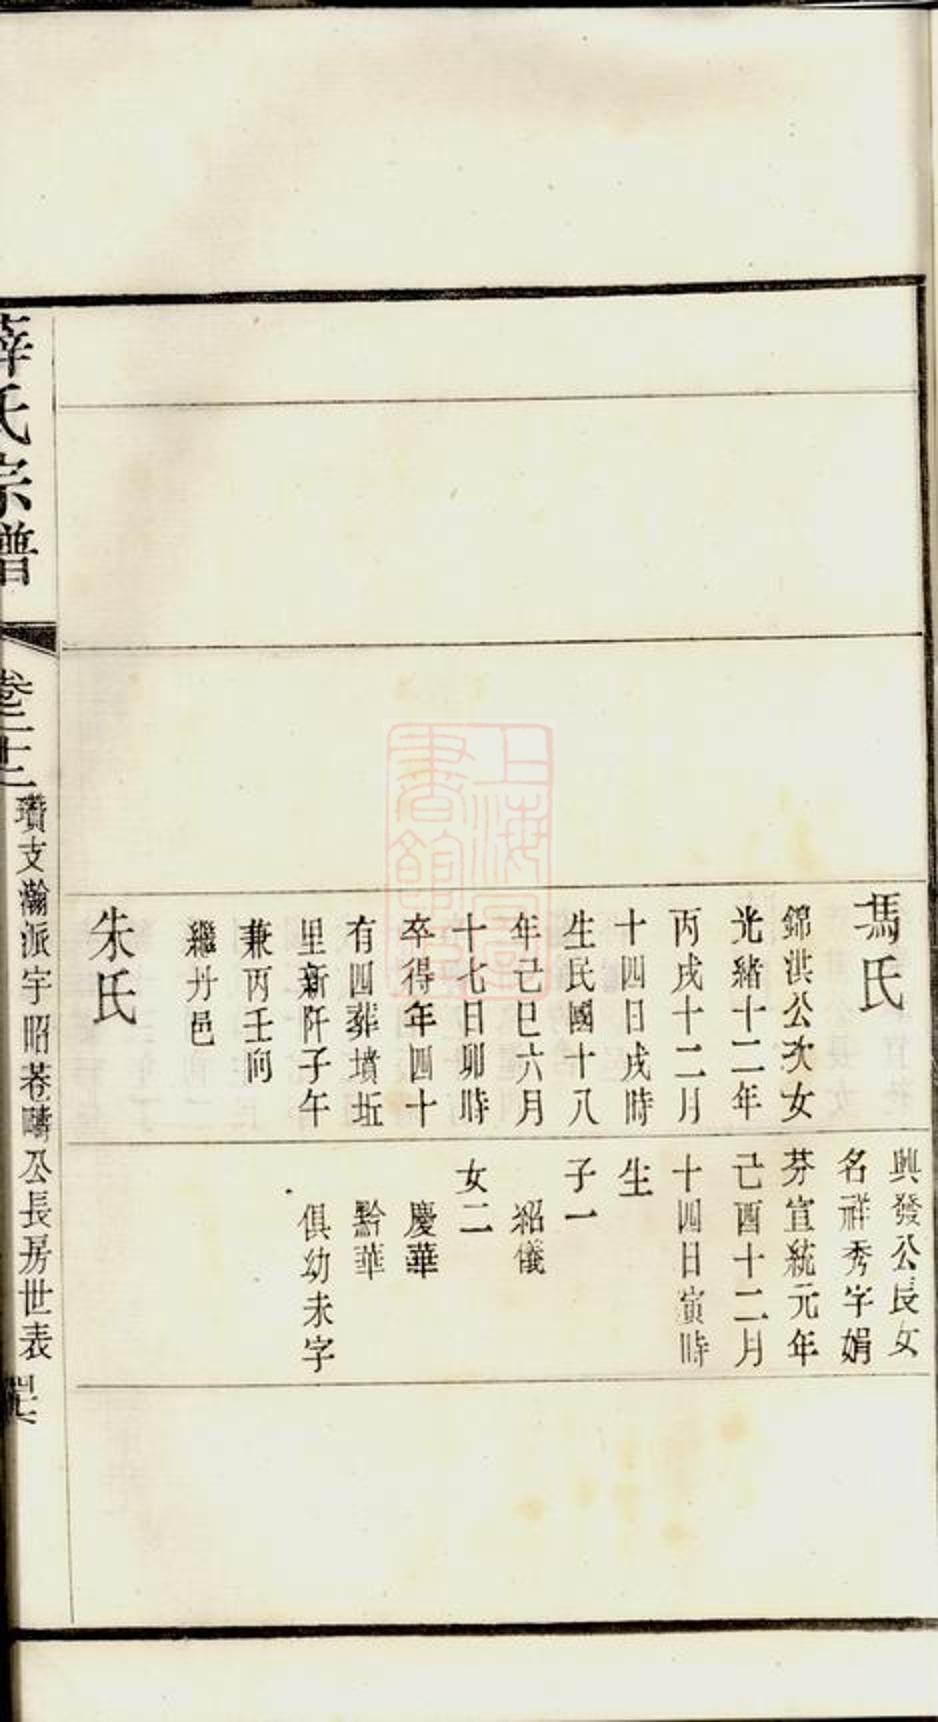 馮氏
錦洪公次女
光緒十二年
丙戌十二月
十四日戌時
生民國十八
年己巳六月
十七日卯時
卒得年四十
有四葬墳坵
里新阡子午
兼丙壬向
繼丹邑
朱氏
興發公長女
名祥秀字娟
芬宣統元年
己酉十二月
十四日寅時
生
子一
紹儀
女二
慶華
黔華
俱幼未字
薛氏宗譜
卷二十二
瓚支瀚派宇昭巷疇公長房世表
上海圖書館藏